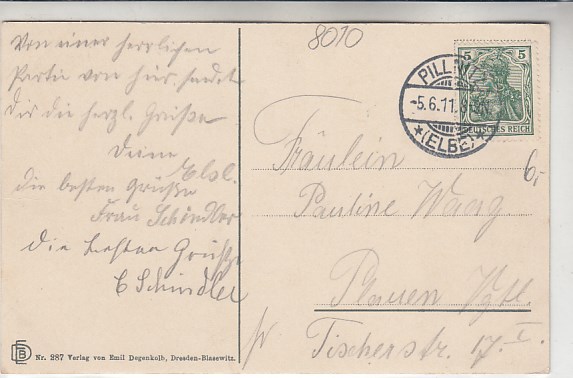 Von einer herrlichen
Partie von hier, sendet
Dir die herzl. Grüße
Deine
Elsl.
die besten Grüße
Frau Schindler
die besten Grüße
E Schindler
Nr. 287 Verlag von Emil Degenkolb, Dresden-Blasewitz.
8010
PILLNITZ
-5.6.11.
*(ELBE)*
5 5
DEUTSCHES REICH
6,-
Fräulein
Pauline
Plauen Vgtl.
Fischerstr. 17. I.